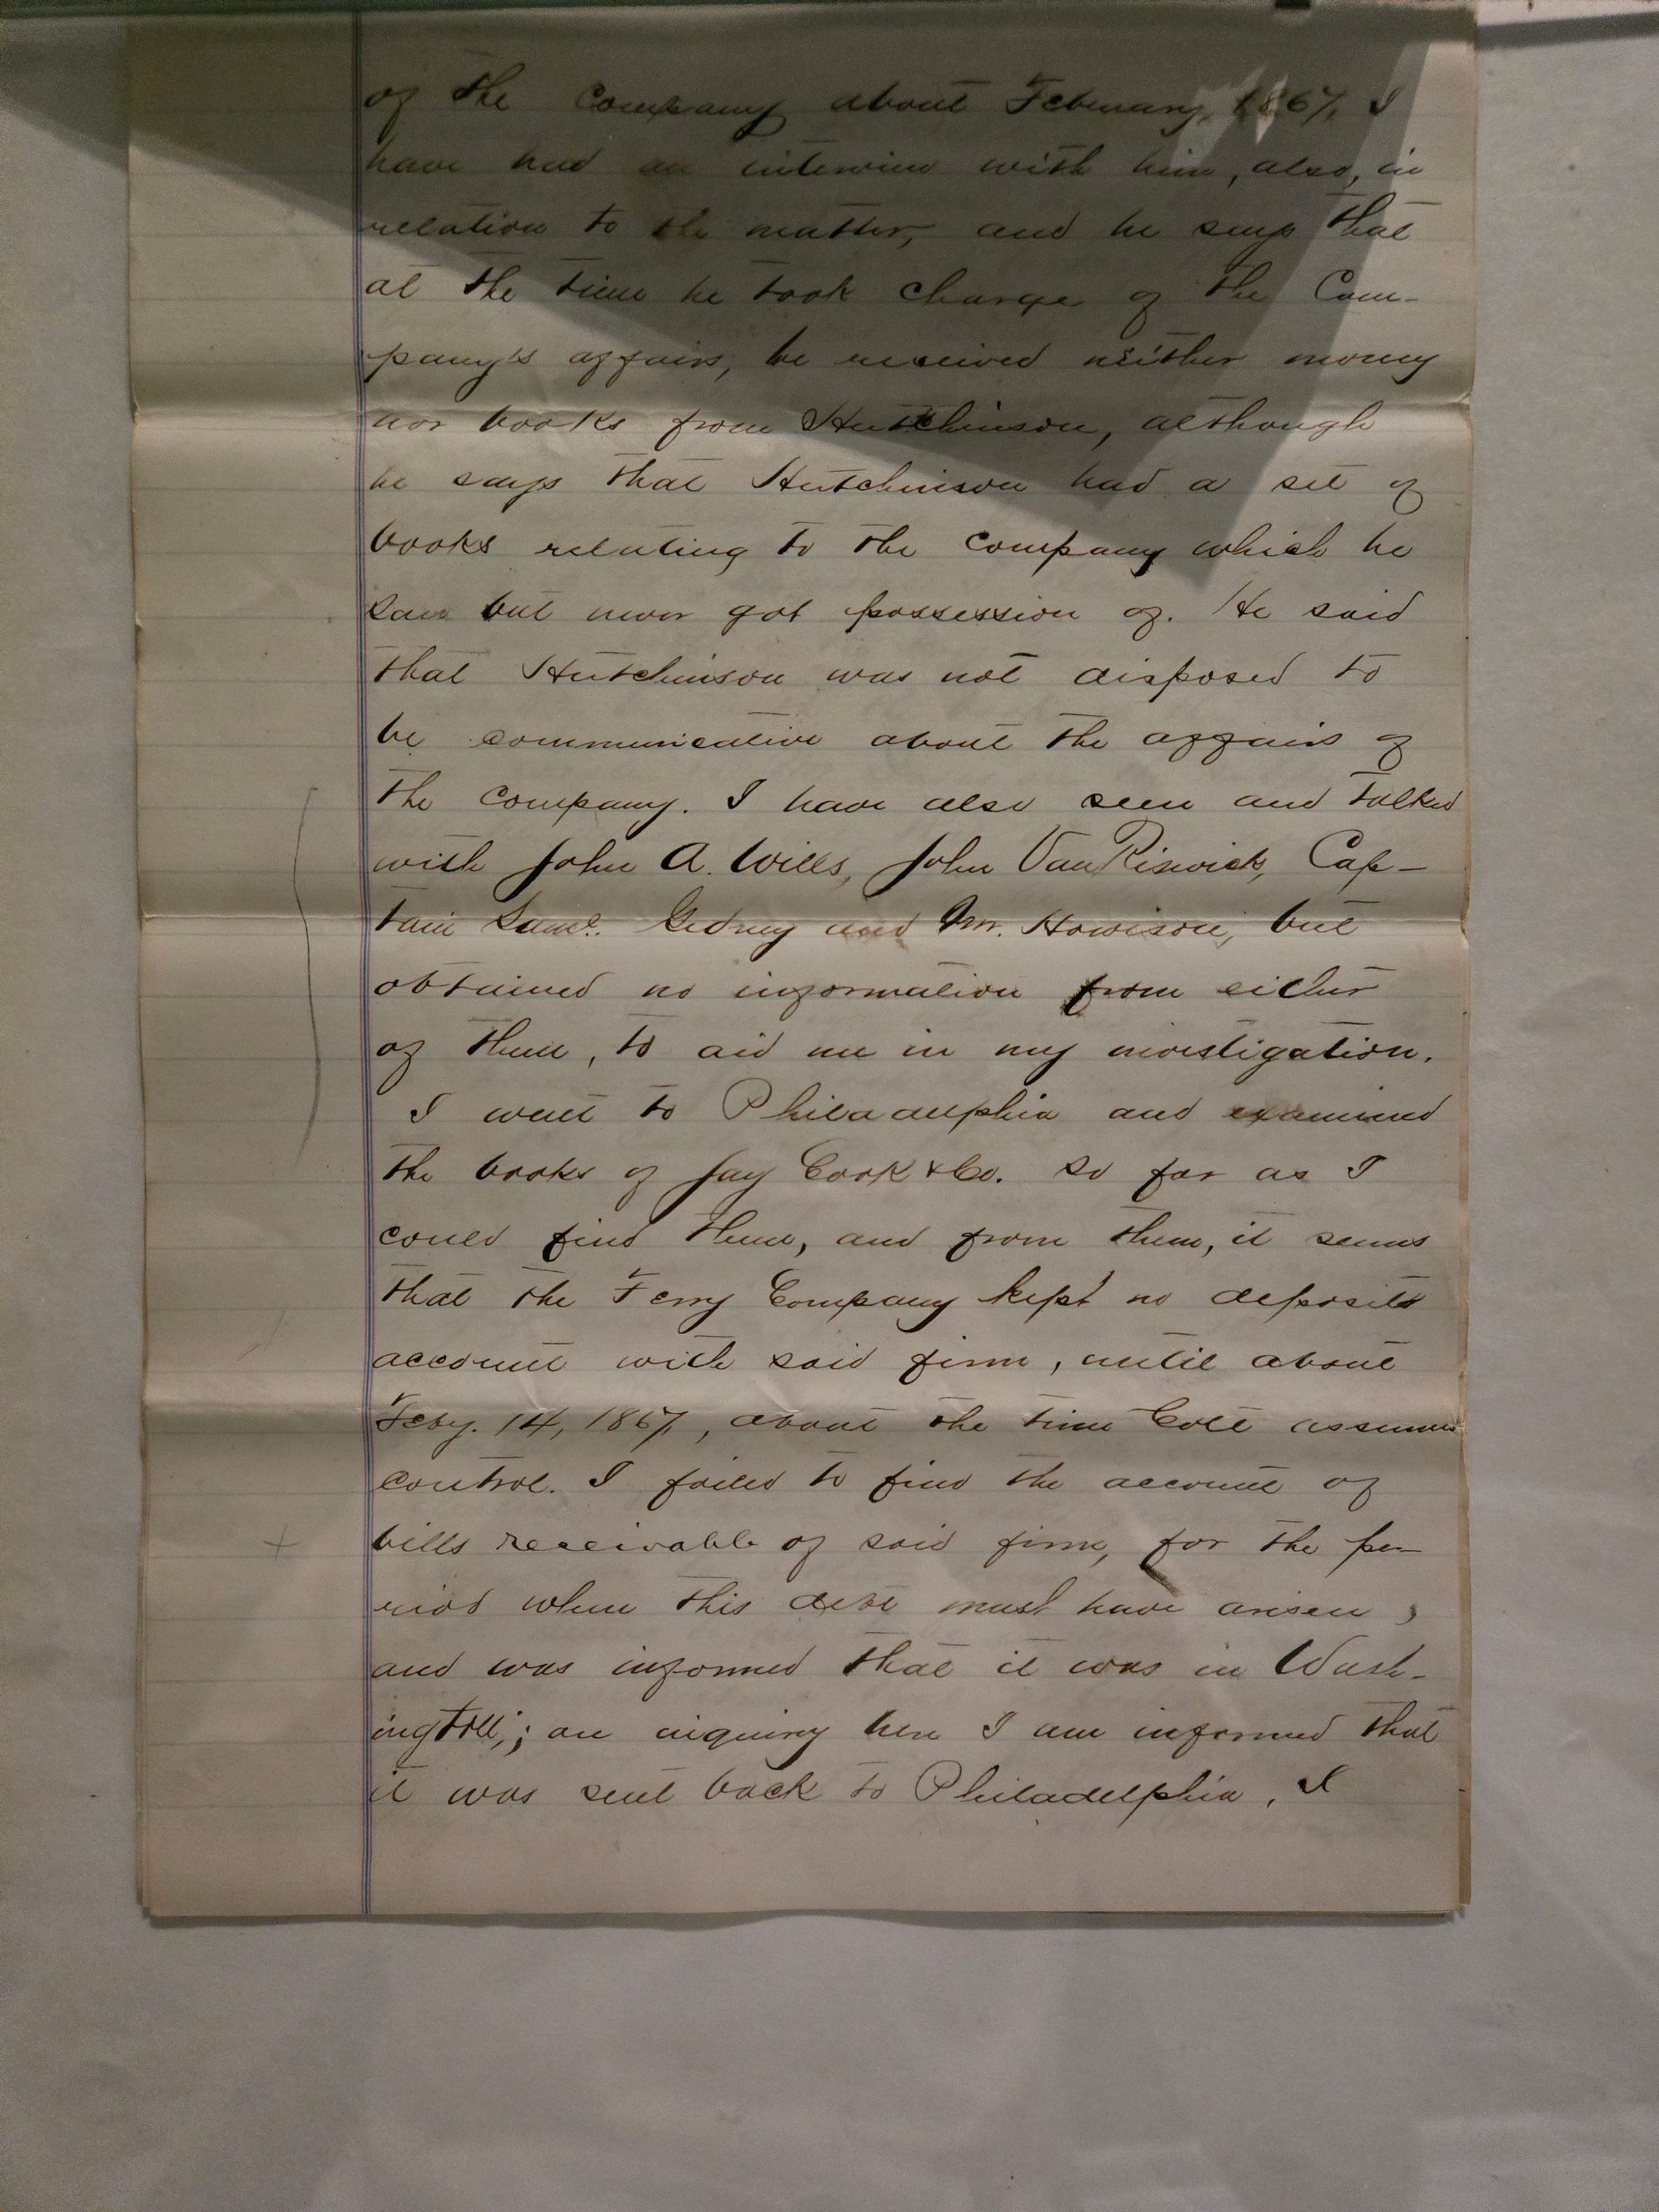 of the Company about February, 1867, I
have had an interview with him, also, in
relation to the matter, and he says that
at the time he took charge of the Com-
pany's affairs, he received neither money
nor books from Hutchinson, although
he says that Hutchinson had a set of
books relating to the Company which he
saw but never got possession of. He said
that Hutchinson was not disposed to
be communicative about the affairs of
the Company. I have also seen and talked
with John A. Wills, John Van Riswick, Cap-
tain Saml. Gedney and Mr. Howison, but
obtained no information from either
of them, to aid me in my investigation.
I went to Philadelphia and examined
the books of Jay Cook & Co. so far as I
could find them, and from them, it seems
that the Ferry Company kept no deposits
account with said firm, until about
Feby. 14, 1867, about the time Colt assumed
control. I failed to find the account of
bills receivable of said firm, for the pe-
riod when this debt must have arisen,
and was informed that it was in Wash-
ington; on inquiry here I am informed that
it was sent back to Philadelphia, I